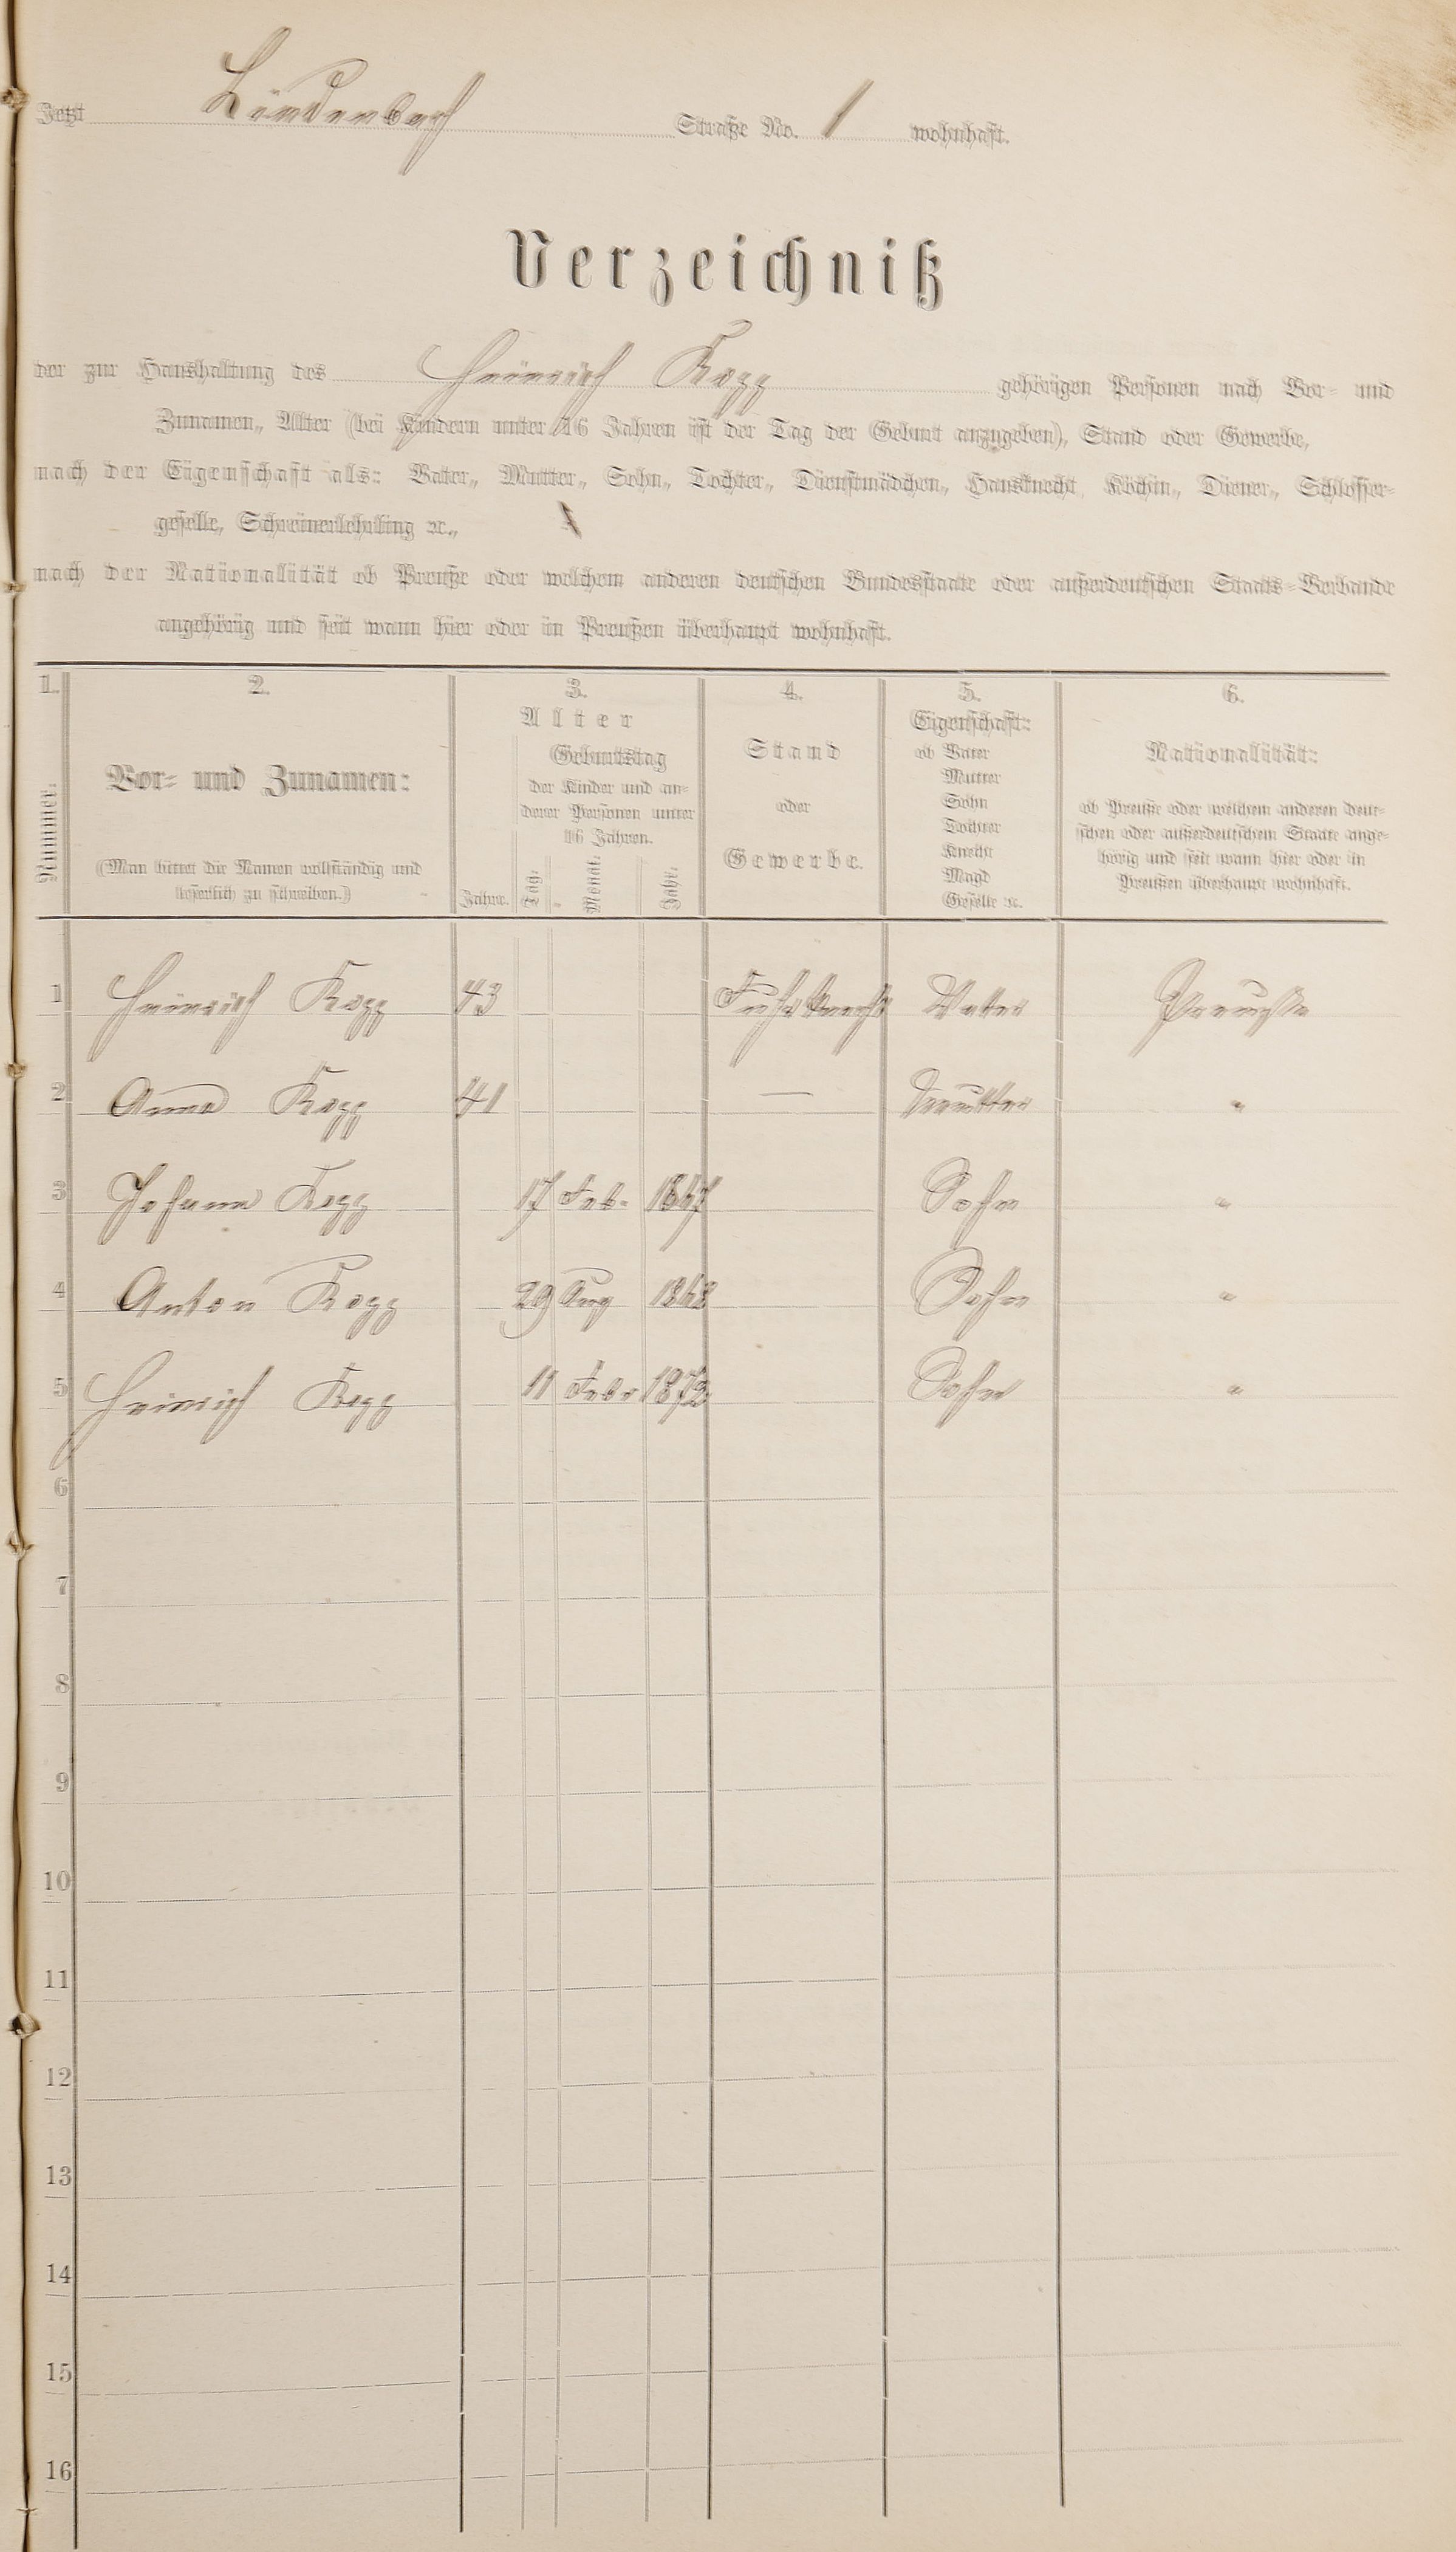 Jetzt Lindenbach Straße No. 1 wohnhaft.
Verzeichniß
der zur Haushaltung des Heinrich Kopp gehörigen Personen nach Vor- und
Zunamen, Alter (bei Kindern unter 16 Jahren ist der Tag der Geburt anzugeben), Stand oder Gewerbe,
nach der Eigenschaft als: Vater, Mutter, Sohn, Tochter, Dienstmädchen, Hausknecht, Köchin, Diener, Schlosser-
geselle, Schreinerlehrling ꝛc.,
nach der Nationalität ob Preuße oder welchem anderen deutschen Bundesstaate oder außerdeutschen Staats-Verbande
angehörig und seit wann hier oder in Preußen überhaupt wohnhaft.
1. 2. 3. 4. 5. 6.
Nummer.
Vor- und Zunamen:
(Man bittet die Namen vollständig und
leserlich zu schreiben.)
Alter
Jahre.
Geburtstag
der Kinder und an-
derer Personen unter
16 Jahren.
Tag. Monat. Jahr.
Stand
oder
Gewerbe.
Eigenschaft:
ob Vater
Mutter
Sohn
Tochter
Knecht
Magd
Geselle ꝛc.
Nationalität:
ob Preuße oder welchem anderen deut-
schen oder außerdeutschem Staate ange-
hörig und seit wann hier oder in
Preußen überhaupt wohnhaft.
1 Heinrich Kopp 43 Fuhrknecht Vater Preuße
2 Anna Kopp 41 — Mutter "
3 Johann Kopp 17 Feb. 1867 Sohn "
4 Anton Kopp 29 Aug 1868 Sohn "
5 Heinrich Kopp 11 Febr 1872 Sohn "
6
7
8
9
10
11
12
13
14
15
16